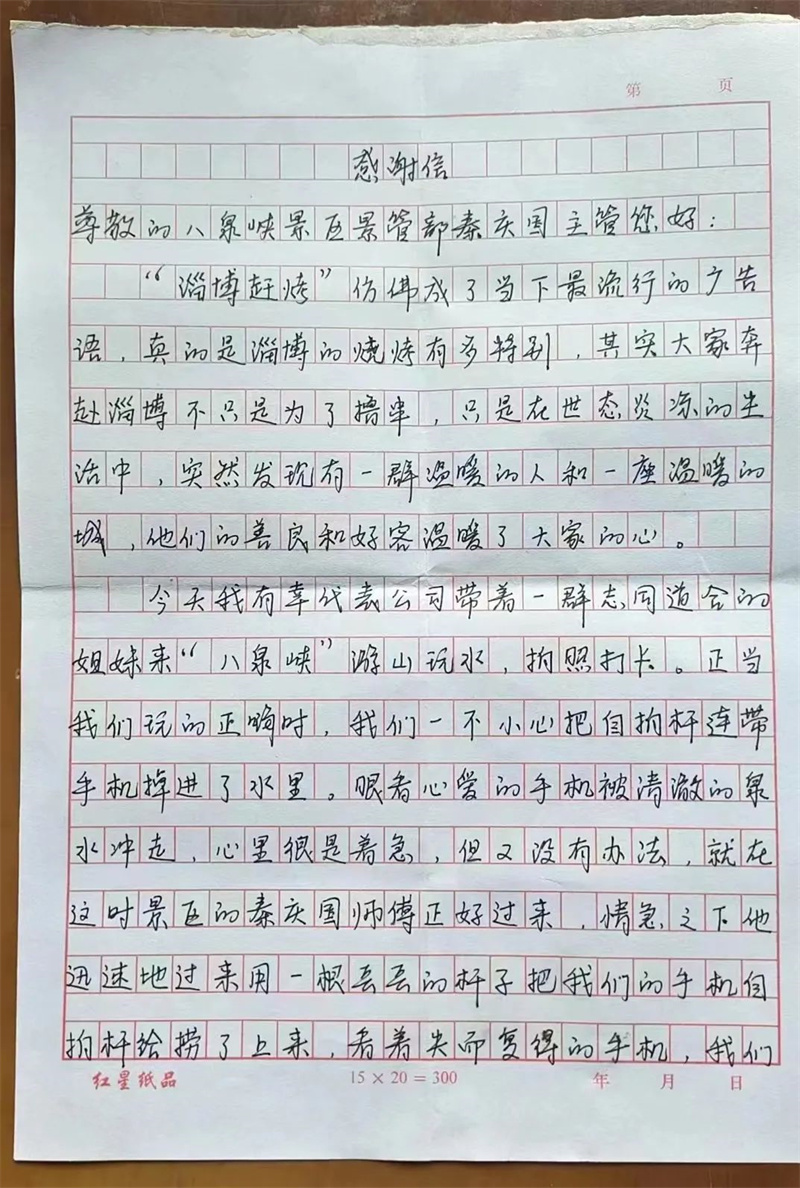 第 页
感谢信
尊敬的八泉峡景区景管部秦庆国主管您好：
“淄博赶烤”仿佛成了当下最流行的广告
语，真的是淄博的烧烤有多特别，其实大家奔
赴淄博不只是为了撸串，只是在世态炎凉的生
活中，突然发现有一群温暖的人和一座温暖的
城，他们的善良和好客温暖了大家的心。
今天我有幸代表公司带着一群志同道合的
姐妹来“八泉峡”游山玩水，拍照打卡。正当
我们玩的正嗨时，我们一不小心把自拍杆连带
手机掉进了水里。眼看心爱的手机被清澈的泉
水冲走，心里很是着急，但又没有办法，就在
这时景区的秦庆国师傅正好过来，情急之下他
迅速地过来用一根丢丢的杆子把我们的手机自
拍杆给捞了上来，看着失而复得的手机，我们
红星纸品 15×20=300 年 月 日